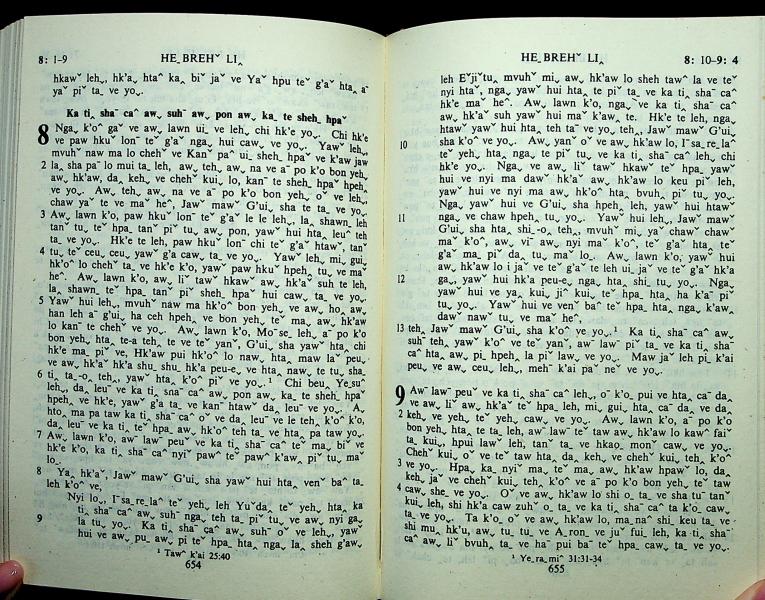 8: 1-9 HE˗ BREHˇ LI˰
hkawˇ leh˯, hk'a˰ hta^ ka˰ biˇ jaˇ ve Yaˇ hpu teˇ g'aˇ hta˰ aˉ
yaˇ piˇ ta˰ ve yo˯.
Ka ti˰ shaˉ ca^ aw˯ suhˉ aw˰ pon aw˰ ka˰ te sheh˰ hpaˇ
8 Nga˰ k'o^ gaˇ ve aw˰ lawn ui˰ ve leh˯, chi hk'e yo˯. Chi hk'e
ve paw hkuˇ lonˉ teˇ g'aˇ nga˰ hui caw˰ ve yo˯. Yawˇ leh˯,
mvuhˇ naw ma lo chehˇ ve Kanˇ paˇ ui˰ sheh˰ hpaˇ ve k'aw jaw
2 la˰ sha paˉ lo mui ta˰ leh, aw˰ teh˰ aw˰ na ve aˉ po k'o bon yeh˰
aw˰ hk'aw˰ da˰ keh˰ ve chehˇ kui˰ lo, kan˰ te sheh˰ hpaˇ hpeh˰
ve yo˯. Aw˰ teh˰ aw˰ na ve aˉ po k'o bon yeh˰ oˇ ve leh˯,
chaw yaˇ te ve maˇ he^, Jawˇ mawˇ G'ui˰ sha te ta˰ ve yo˯.
3 Aw˰ lawn k'o, paw hkuˇ lonˉ teˇ g'aˇ le le leh˰, la˰ shawn˰ leh
tanˇ tu˰ teˇ hpa˰ tanˇ piˇ tu˰ aw˰ pon, yawˇ hui hta˰ leuˇ teh
ta˰ ve yo˯. Hk'e te leh, paw hkuˇ lonˉ chi teˇ g'aˇ htawˇ, tanˇ
4 tu˰ teˇ ceu˰ ceu˰ yawˇ g'a caw˰ ta˰ ve yo˯. Yawˇ leh˰ mi˰ gui˰
hk'o^ lo chehˇ ta˰ ve hk'e k'o, yawˇ paw hkuˇ hpeh˰ tu˰ ve maˇ
he^. Aw˰ lawn k'o, aw˰ liˇ tawˇ hkawˇ aw˰ hk'aˇ suhˉ te leh,
la˰ shawn˰ teˇ hpa˰ tanˇ piˇ sheh˰ hpaˇ hui caw˰ ta˰ ve yo˯.
5 Yawˇ hui leh˯, mvuhˇ naw ma hk'o^ bon yeh˰ ve aw˰ ho˰ aw˰
han leh aˉ g'ui˰ ha ceh hpeh˰ ve bon yeh˰ teˇ ma˰ aw˰ hk'aw
lo kanˇ te chehˇ ve yo˯. Aw˰ lawn k'o, Moˉ se˰ leh˰ aˉ po k'o
bon yeh˰ hta˰ te-a teh˰ te ve teˇ yanˇ, G'ui˰ sha yawˇ hta˰ chi
hk'e ma˰ piˇ ve, Hk'aw pui hk'o^ lo naw˰ hta˰ maw laˇ peu˯
ve aw˰ hk'aˇ hk'a shu˰ shu˰ hk'a peu-e˰ ve hta˰ nawˇ te tu˰ sha˰
6 ti˰ ta˰-o˰ teh˰, yawˇ hta˰ k'o^ piˇ ve yo˯.¹ Chi beu˰ Ye˰ suˇ
leh˯, da˰ leuˇ ve ka ti˰ shaˉ ca^ aw˰ pon aw˰ ka˰ te sheh˰ hpaˇ
hpeh˰ ve hk'e, yawˇ g'a˰ ta˰ ve kanˇ htawˇ da˰ leuˇ ve yo˯. A˰
hto˰ ma pa taw ka ti˰ shaˉ ca^ oˇ ve da˰ leuˇ ve le teh˰ k'o^ k'o,
da˰ leuˇ ve ka ti˰ teˇ hpa˰ aw˰ hk'o^ teh˰ ta˰ ve hta˰ pa taw yo˯.
7 Aw˰ lawn k'o, aw˰ lawˇ peuˇ ve ka ti˰ shaˉ ca^ teˇ ma˰ biˇ ve
hk'e k'o, ka ti˰ shaˉ ca^ nyiˇ pawˇ teˇ pawˇ k'aw˰ piˇ tu˰ maˇ
lo˯.
8 Ya˰ hk'aˇ, Jawˇ mawˇ G'ui˰ sha yawˇ hui hta˰ venˇ baˇ ta˰
leh k'o^ ve,
Nyi lo˯, Iˉ sa˰ re˰ laˇ teˇ yeh˰ leh Yuˇ da˰ teˇ yeh˰ hta˰ ka
ti˰ shaˉ ca^ aw˰ suhˉ nga˰ teh ta˰ piˇ tu˰ ve aw˰ nyi ga˰
9 la tu˰ yo˯. Ka ti˰ shaˉ ca^ aw˰ suhˉ oˇ ve leh˯, yawˇ
hui ve aw˰ pu˰ aw˰ pi teˇ hpa˰ hta˰ nga˰ la˰ sheh g'aw˰
¹ Taw˅ k'ai 25:40
654
HE˗ BREHˇ LI˰ 8: 10-9: 4
leh Eˇ ji˅ tu˰ mvuhˇ mi˰ aw˰ hk'aw lo sheh tawˇ la ve teˇ
nyi hta^, nga˰ yawˇ hui hta˰ te piˇ ta˰ ve ka ti˰ shaˉ ca^
hk'e maˇ he^. Aw˰ lawn k'o, nga˰ ve ka ti˰ shaˉ ca^
aw˰ hk'aˇ suh yawˇ hui maˇ k'aw˰ te. Hk'e te leh, nga˰
htawˇ yawˇ hui hta˰ teh taˇ ve yo˯ teh˰ Jawˇ mawˇ G'ui˰
10 sha k'o^ ve yo˯. Aw˰ yan^ oˇ ve aw˰ hk'aw lo, Iˉ sa˰ re˰ laˇ
teˇ yeh˰ hta˰ nga˰ te piˇ tu˰ ve ka ti˰ shaˉ ca^ leh˯, chi
hk'e yo˯. Nga˰ ve aw˰ liˇ tawˇ hkawˇ teˇ hpa˰ yawˇ
hui ve nyi ma dawˇ hk'aˇ aw˰ hk'aw lo keu piˇ leh,
yawˇ hui ve nyi ma aw˰ hk'o^ hta˰ bvuh˰ piˇ tu˰ yo˯.
Nga˰ yawˇ hui ve G'ui˰ sha hpeh˰ leh, yawˇ hui htawˇ
11 nga˰ ve chaw hpeh˰ tu˰ yo˯. Yawˇ hui leh˯, Jawˇ mawˇ
G'ui˰ sha hta˰ shi˰-o˰ teh˰, mvuhˇ mi˰ yaˇ chawˇ chawˇ
maˇ k'o^, aw˰ viˉ aw˰ nyi maˇ k'o^, teˇ g'aˇ hta˰ teˇ
g'aˇ ma˰ piˇ da˰ tu˰ maˇ lo˯. Aw˰ lawn k'o, yawˇ hui
aw˰ hk'aw lo i jaˇ ve teˇ g'aˇ te leh ui˰ jaˇ ve teˇ g'aˇ hk'a
12 ga˰, yawˇ hui hk'a peu-e˰ nga˰ hta˰ shi˰ tu˰ yo˯. Nga˰
yawˇ hui ve ya˰ kui˰ jiˇ kui˰ teˇ hpa˰ hta˰ ha k'aˉ piˇ
tu˰ yo˯. Yawˇ hui ve venˇ baˇ teˇ hpa˰ hta˰ nga˰ k'aw˰
dawˇ nawˇ tu˰ ve maˇ he^,
13 teh˰ Jawˇ mawˇ G'ui˰ sha k'o^ ve yo˯.¹ Ka ti˰ shaˉ ca^ aw˰
suhˉ teh˰ yawˇ k'o^ ve teˇ yanˇ, aw˰ lawˇ piˇ ta˰ ve ka ti˰ shaˉ
ca^ hta˰ aw˰ pi˰ hpeh˰ la piˇ law˰ ve yo˯. Maw jaˇ leh pi˰ k'ai
peu˰ ve aw˰ ceu˰ leh˯, mehˇ k'ai paˇ neˇ ve yo˯.
9 Awˇ lawˇ peuˇ ve ka ti˰ shaˉ ca^ leh˯, oˇ k'o˰ pui ve hta˰ caˉ da˰
ve aw˰ liˇ aw˰ hk'aˇ teˇ hpa˰ leh, mi˰ gui˰ hta˰ caˉ da˰ ve da˰
2 keh˰ ve yeh˰ teˇ yeh˰ caw˰ ve yo˯. Aw˰ lawn k'o, aˉ po k'o
bon yeh˰ hta˰ te ta˰ leh, aw˰ lawˉ teˇ taw aw˰ hk'aw lo kawˇ faiˇ
ta˰ kui˰, hpui lawˇ leh, tanˇ ta˰ ve hkao˰ mon˅ caw˰ ve yo˯.
Chehˇ kui˰ oˇ ve teˇ taw hta˰ da˰ keh˰ ve chehˇ kui˰ teh˰ k'o^
3 ve yo˯. Hpa˰ ka˰ nyiˇ ma˰ teˇ ma˰ aw˰ hk'aw hpawˇ lo, da˰
keh˰ jaˇ ve chehˇ kui˰ teh˰ k'o^ ve aˉ po k'o bon yeh˰ teˇ taw
4 caw˰ she˰ ve yo˯. Oˇ ve aw˰ hk'aw lo shi o˰ ta˰ ve sha tuˉ tanˇ
kui˰ leh, shi hk'a caw zuhˇ o˰ ta˰ ve ka ti˰ shaˉ ca^ ta k'o˰ caw˰
ta˰ ve yo˯. Ta k'o˰ oˇ ve aw˰ hk'aw lo, ma˰ na^ shi˰ keu ta˰ ve
shi mu˰ hk'u˰ aw˰ tu˰ tu˰ ve A˰ ron˰ ve juˇ fui˰ leh, ka ti˰ shaˉ
ca^ aw˰ liˇ bvuh˰ ta˰ ve haˉ pui baˇ teˇ hpa˰ caw˰ ta˰ ve yo˯.
¹ Ye˰ ra˰ mi^ 31:31-34
655